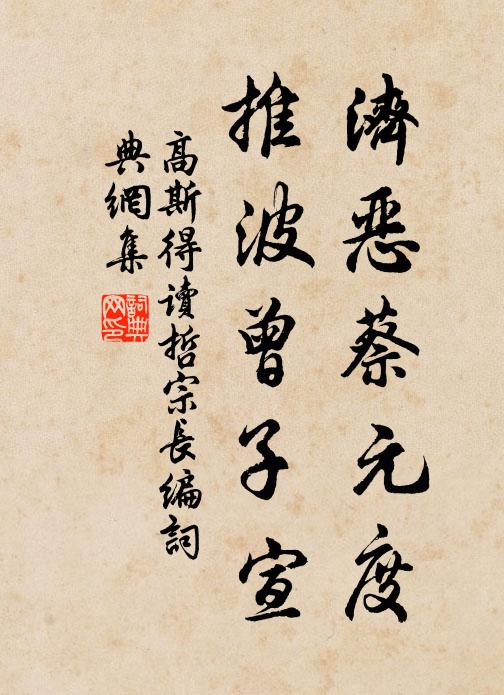 濟惡蔡元度
推波曾子宣
高斯得讀哲宗長编詞
典網集
詞典網印